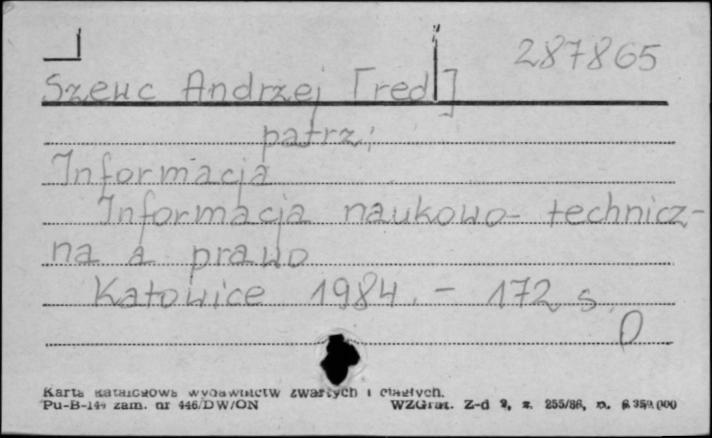 287865
Szewc Andrzej [red]
patrz:
Informacja
Informacja naukowo-technicz-
na a prawo
Katowice 1984. - 172 s.
Karta katalogowa wydawnictw zwartych i ciągłych.
Pu-B-144 zam. nr 446/DW/ON WZGraf. Z-d 2, z. 255/86, n.